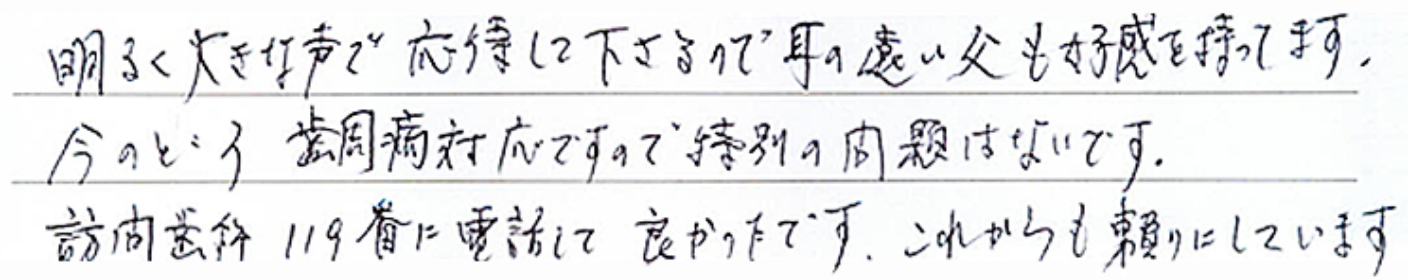 明るく大きな声で応待して下さるので耳の遠い父も好感を持ってます。
今のところ歯周病対応ですので特別の問題はないです。
訪問歯科119番に電話して良かったです。これからも頼りにしています